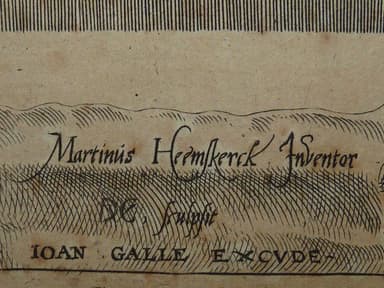 Martinus Heemskerck Inventor
DC. sculpsit
IOAN GALLE EXCVDE-